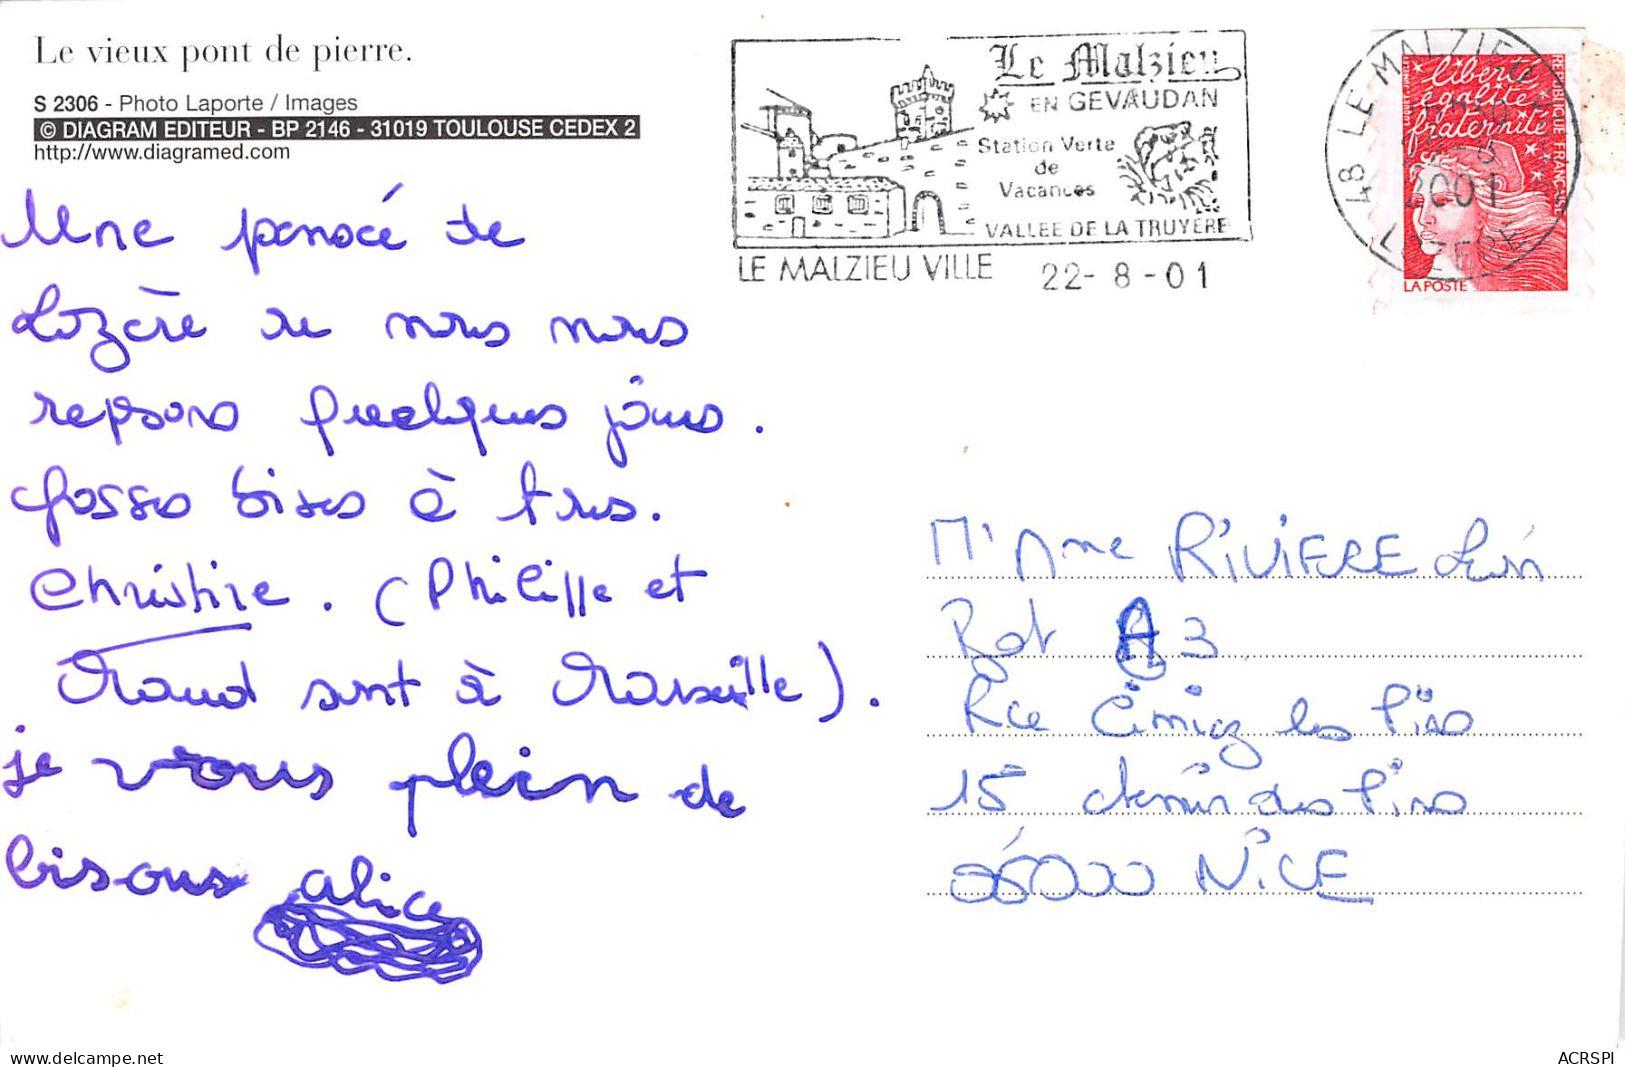 Le vieux pont de pierre.
S 2306 - Photo Laporte / Images
© DIAGRAM EDITEUR - BP 2146 - 31019 TOULOUSE CEDEX 2
http://www.diagramed.com
Une pensée de
Lozère où nous nous
reposons quelques jours.
Grosses bises à tous.
Christine. (Philippe et
Maud sont à Marseille).
je vous plein de
bisous alice
Le Malzieu
EN GEVAUDAN
Station Verte
de
Vacances
VALLEE DE LA TRUYERE
LE MALZIEU VILLE 22-8-01
48 LE MALZIEU
2001
LOZERE
liberté
égalité
fraternité
REPUBLIQUE FRANÇAISE
LA POSTE
M' Mme RIVIERE
Bat A 3
Rce Cimiez les Pins
15 chemin des Pins
06000 NICE
www.delcampe.net
ACRSPI